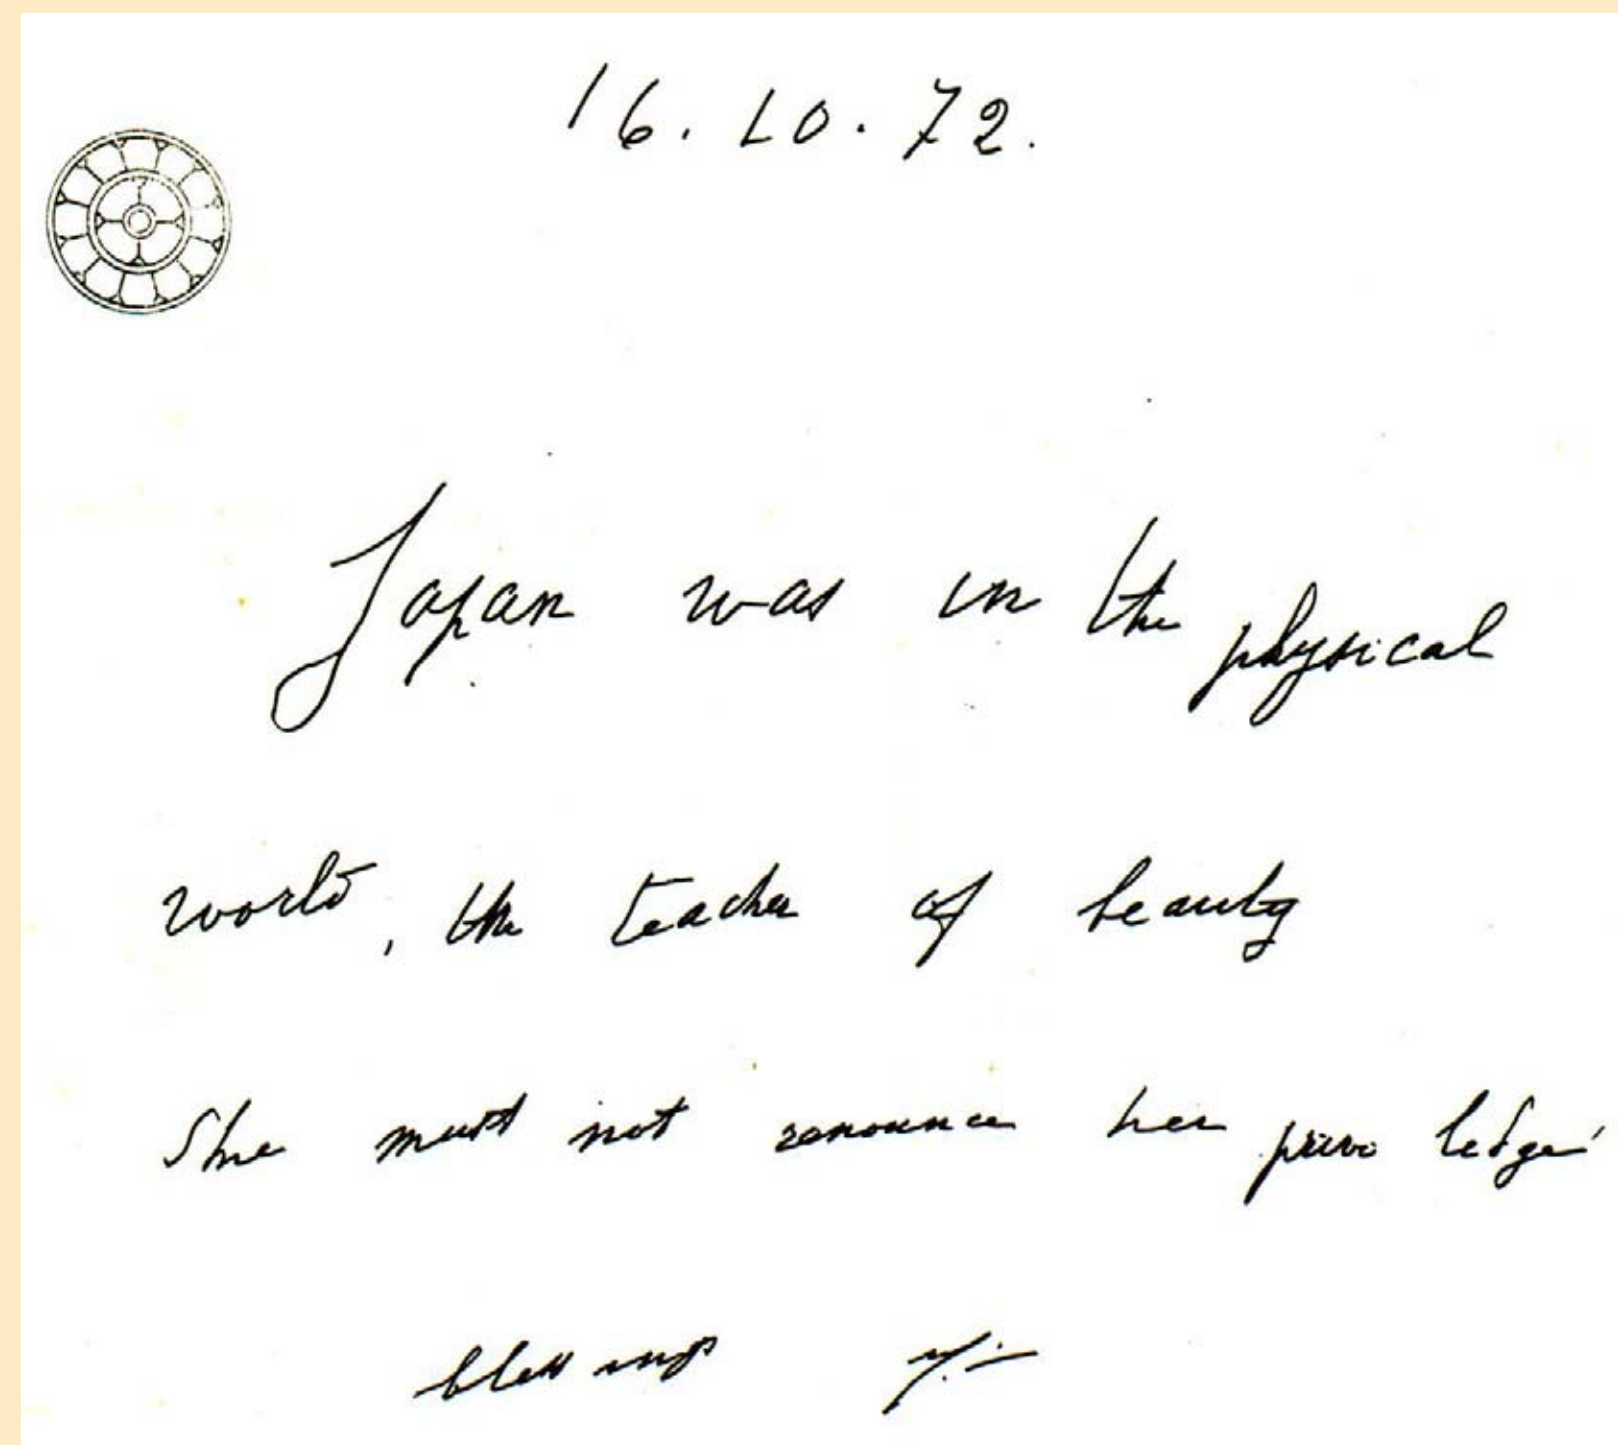 16.10.72.
Japan was in the physical
world, the teacher of beauty
She must not renounce her priviledge
blessings